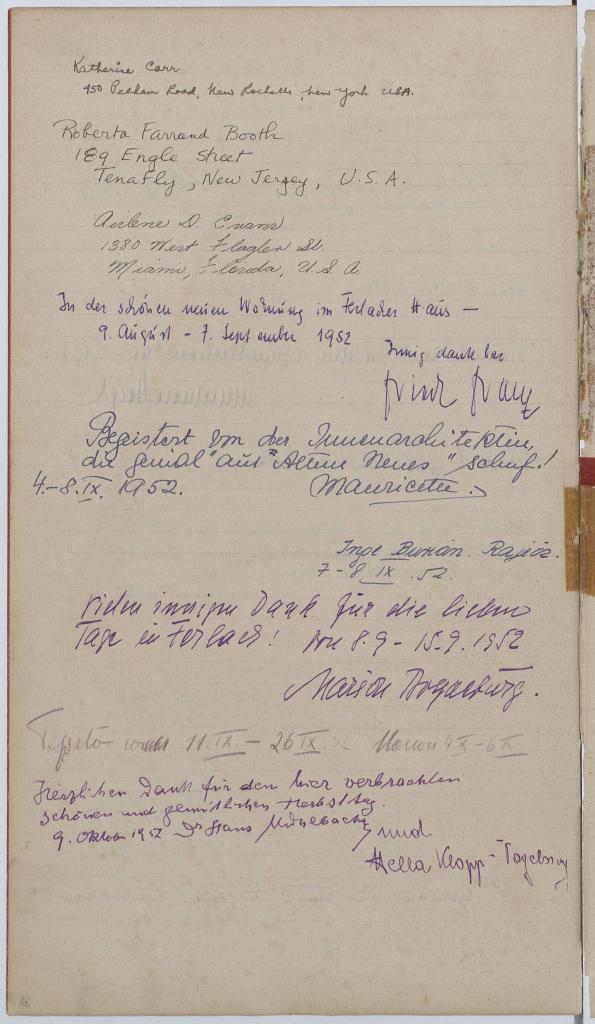 Katherine Carr
450 Pelham Road, New Rochelle, New York USA.
Roberta Farrand Booth
189 Engle Street
Tenafly, New Jersey, U.S.A.
Arlene D Evans
1380 West Flagler St.
Miami, Florida, U.S.A.
In der schönen neuen Wohnung im Ferlacher Haus —
9. August - 7. September 1952
Innig dankbar
Begeistert von der Innenarchitektin,
die genial "aus Altem Neues" schuf!
4.-8. IX. 1952.
Mauricette.
Inge
7-8 IX .52.
Vielen innigen Dank für die lieben
Tage in Ferlach! Von 8.9 - 15.9.1952
Marion
11.IX. - 26 IX. 52 Marion 4 X - 6 X
Herzlichen Dank für den hier verbrachten
schönen und gemütlichen Herbsttag.
9. Oktober 1952 Dr Hans Mühlbacher
und
Hella Klopp-
18